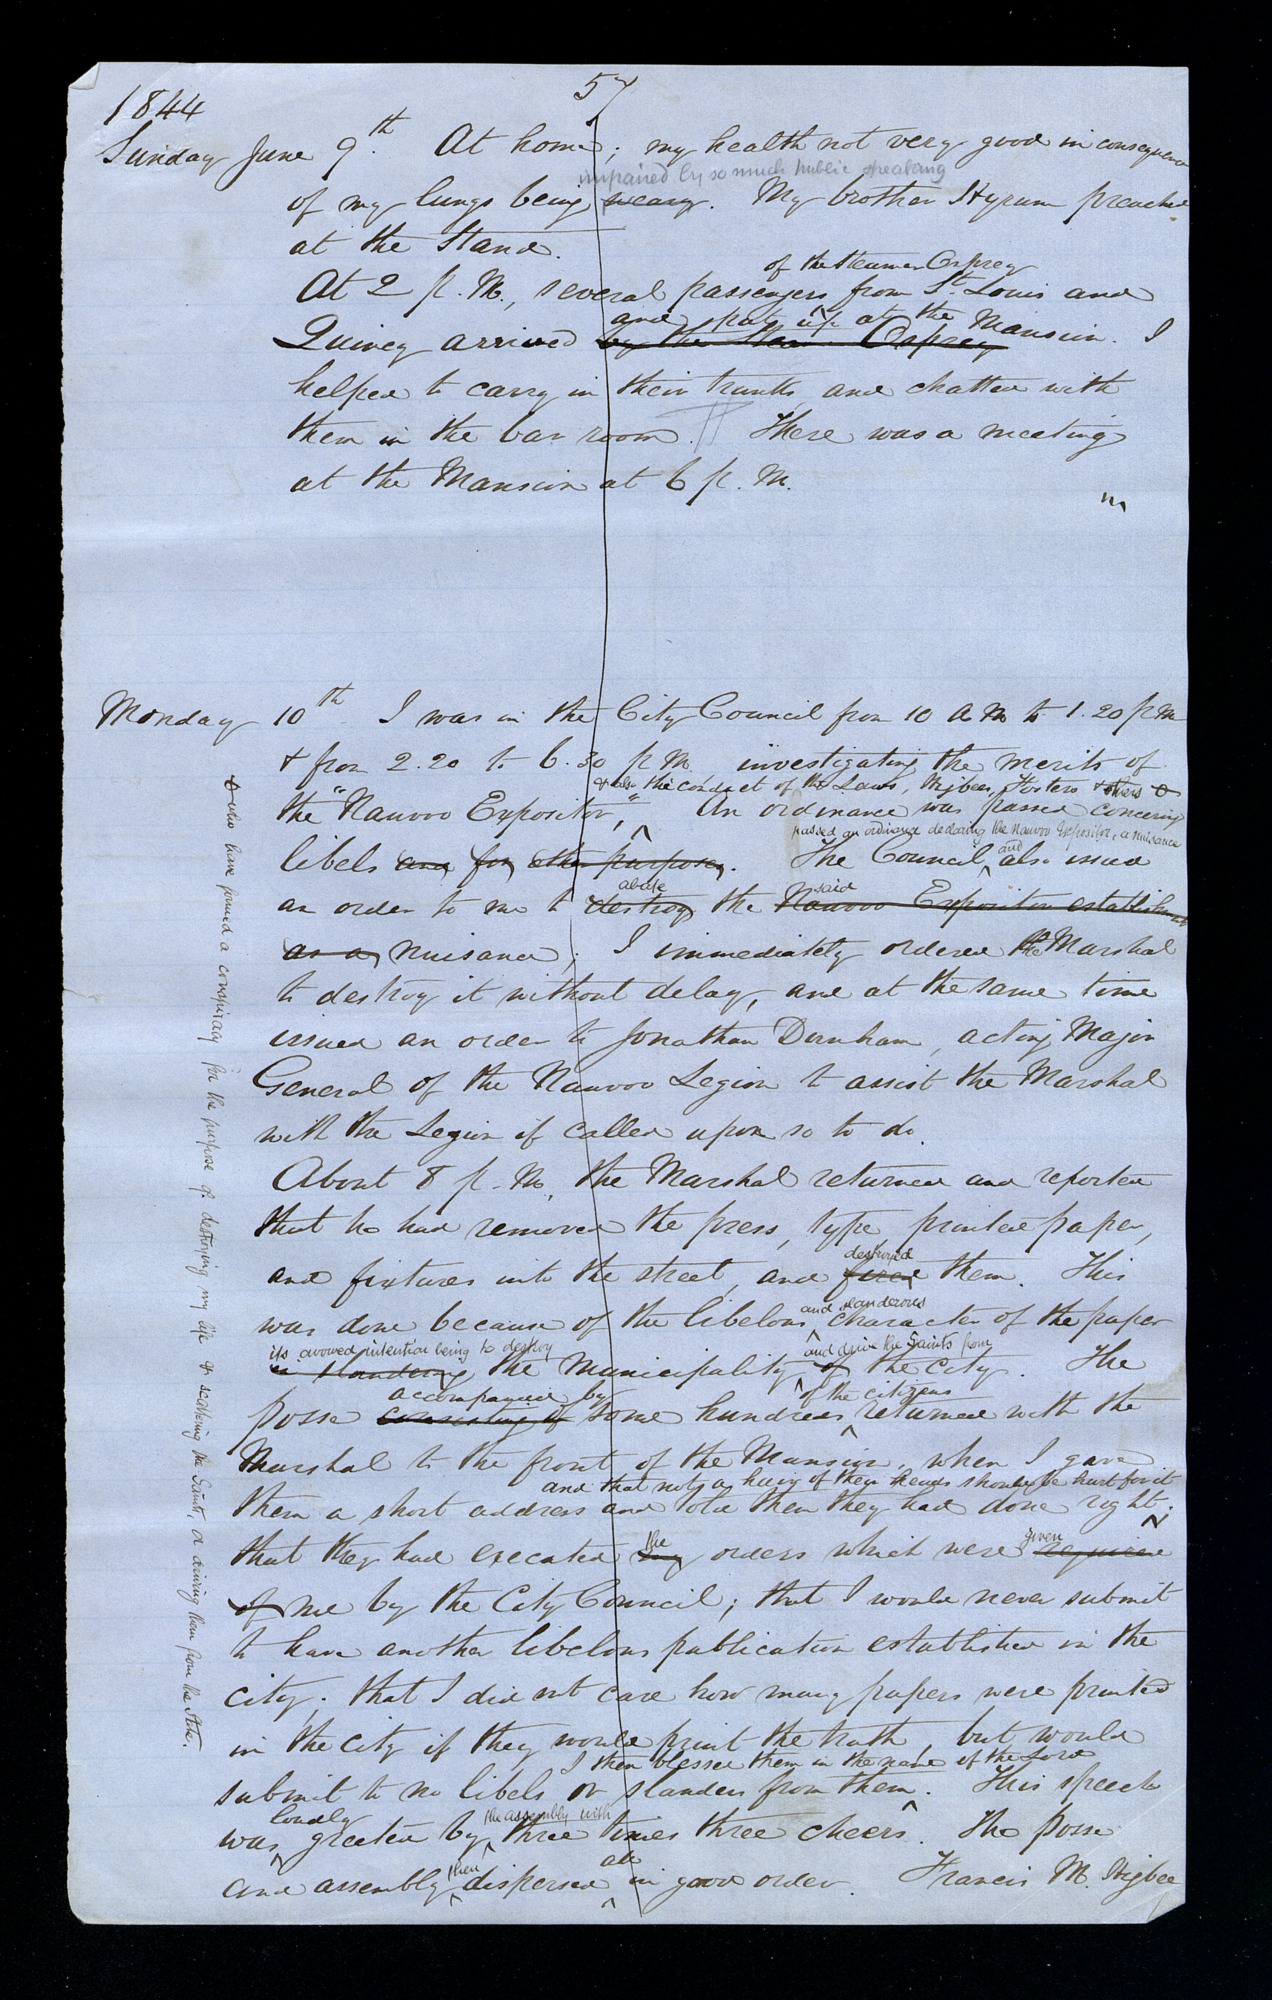 57
1844
Sunday June 9th. At home; my health not very good in consequence
impaired by so much public speaking
of my lungs being weary. My brother Hyrum preached
at the Stand.
of the steamer Osprey
At 2 p.M., several passengers from St. Louis and
and put up at the Mansion. I
Quincy arrived by the Steam Osprey
helped to carry in their trunks, and chatted with
them in the bar room. There was a meeting
at the Mansion at 6 p.M.
Monday 10th I was in the City Council from 10 A M to 1.20 p M
& from 2.20 to 6.30 p M investigating the merits of
& also the conduct of the Laws, Higbees, Fosters & others
the "Nauvoo Expositor," An ordinance was passed concerning
passed an ordinance declaring the Nauvoo Expositor, a nuisance
libels and for other purposes. The Council, and also issued
abate said
an order to me to destroy the Nauvoo Expositor establishment
as a nuisance; I immediately ordered the Marshal
to destroy it without delay, and at the same time
issued an order to Jonathan Dunham, acting Major
General of the Nauvoo Legion to assist the Marshal
with the Legion if called upon so to do.
About 8 p.M., the Marshal returned and reported
that he had removed the press, type, printed paper,
destroyed
and fixtures into the street, and fired them. This
and slanderous
was done because of the libelous character of the paper
its avowed intention being to destroy and drive the Saints from
in slandering the Municipality of the city. The
accompanied by of the citizens
posse consisting of some hundreds returned with the
Marshal to the front of the Mansion, when I gave
and that not a hair of their heads should be hurt for it
them a short address and told them they had done right;
the given
that they had executed my orders which were required
of me by the City Council; that I would never submit
to have another libelous publication established in the
city; that I did not care how many papers were printed
in the city if they would print the truth, but would
I then blessed them in the name of the Lord
submit to no libels or slanders from them. This speech
loudly the assembly with
was greeted by three times three cheers. The posse
then all
and assembly dispersed in good order. Francis M. Higbee
& who have formed a conspiracy for the purpose of destroying my life & scattering the Saints, or driving them from the State.